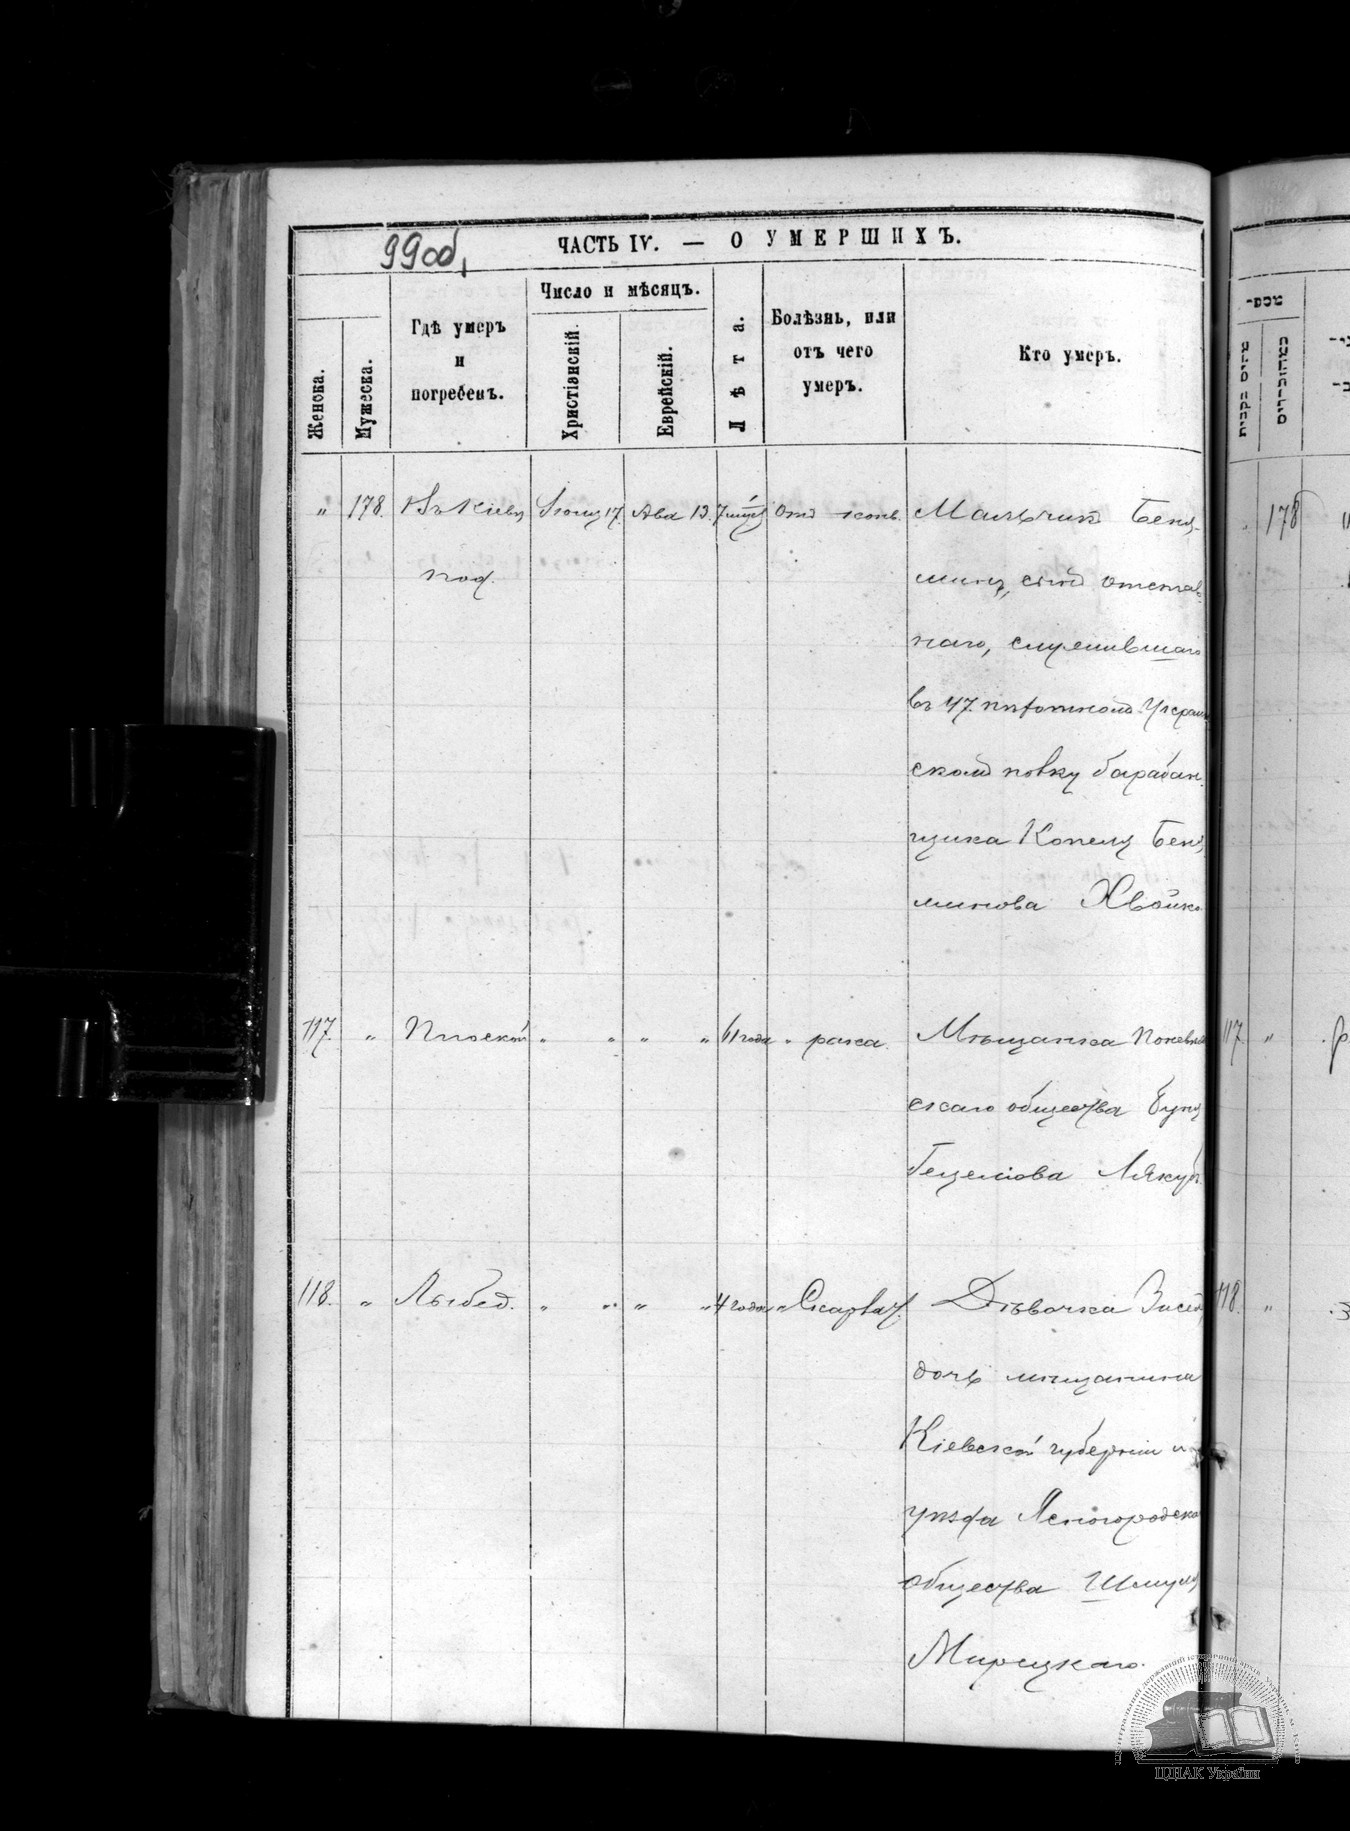 99об,
ЧАСТЬ IV. — О УМЕРШИХЪ.
Женска.
Мужеска.
Гдѣ умеръ
и
погребенъ.
Число и мѣсяцъ.
Христіанскій.
Еврейскій.
Лѣта.
Болѣзнь, или
отъ чего
умеръ.
Кто умеръ.
„ 178. Въ Кіевѣ 17. Ава 13. Отъ Мальчикъ Беня-
под. минъ, сынъ отстав-
наго, служившаго
въ 47. пѣхотномъ Украин
скомъ полку барабан-
щика Копеля Беня
минова Хвойка
117. „ Плоской „ „ „ „ 61 года „ рака. Мѣщанка
скаго общества
Гецелева
118. „ Лыбед. „ „ „ „ 4 года „ Скарлат. Дѣвочка
дочь мѣщанина
Кіевской губерніи и
уѣзда Ясногородска
общества Шмуля
Мирецкаго.
178
117. „
118. „
ЦДІАК України